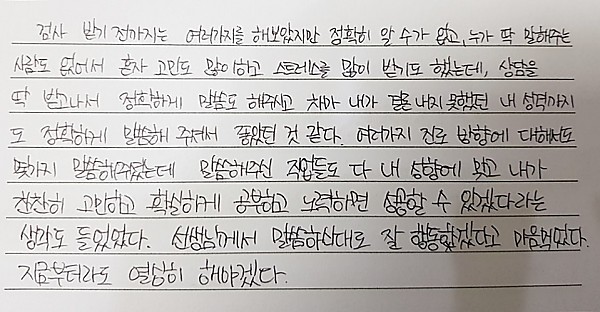 검사 받기 전까지는 여러가지를 해보았지만 정확히 알 수가 없고, 누가 딱 말해주는
사람도 없어서 혼자 고민도 많이하고 스트레스를 많이 받기도 했는데, 상담을
딱 받고나서 정확하게 말씀도 해주시고 차마 내가 털어내지못했던 내 성격까지
도 정확하게 말씀해 주셔서 좋았던 것 같다. 여러가지 진로 방향에 대해서도
몇가지 말씀해주셨는데 말씀해주신 직업들도 다 내 성향에 맞고 내가
찬찬히 고민하고 확실하게 공부하고 노력하면 성공할 수 있겠다라는
생각도 들었었다. 선생님께서 말씀하신대로 잘 행동해야겠다고 마음먹었다.
지금부터라도 열심히 해야겠다.